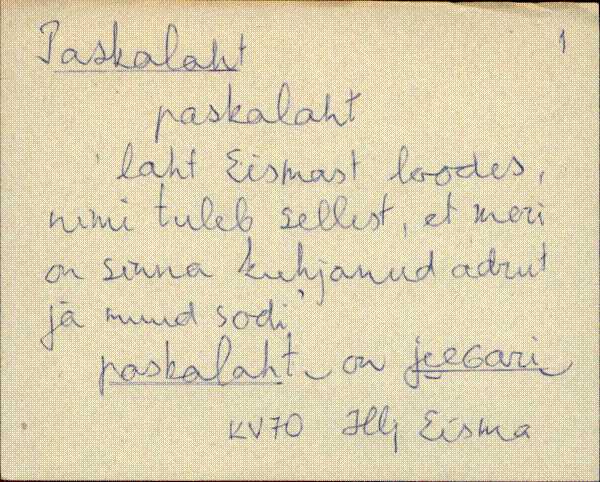 Paskalaht 1
paskalaht
'laht Eismast loodes,
nimi tuleb sellest, et meri
on sinna kuhjanud adrut
ja muud sodi'
paskalaht on jeegari
KV70 Hlj Eisma